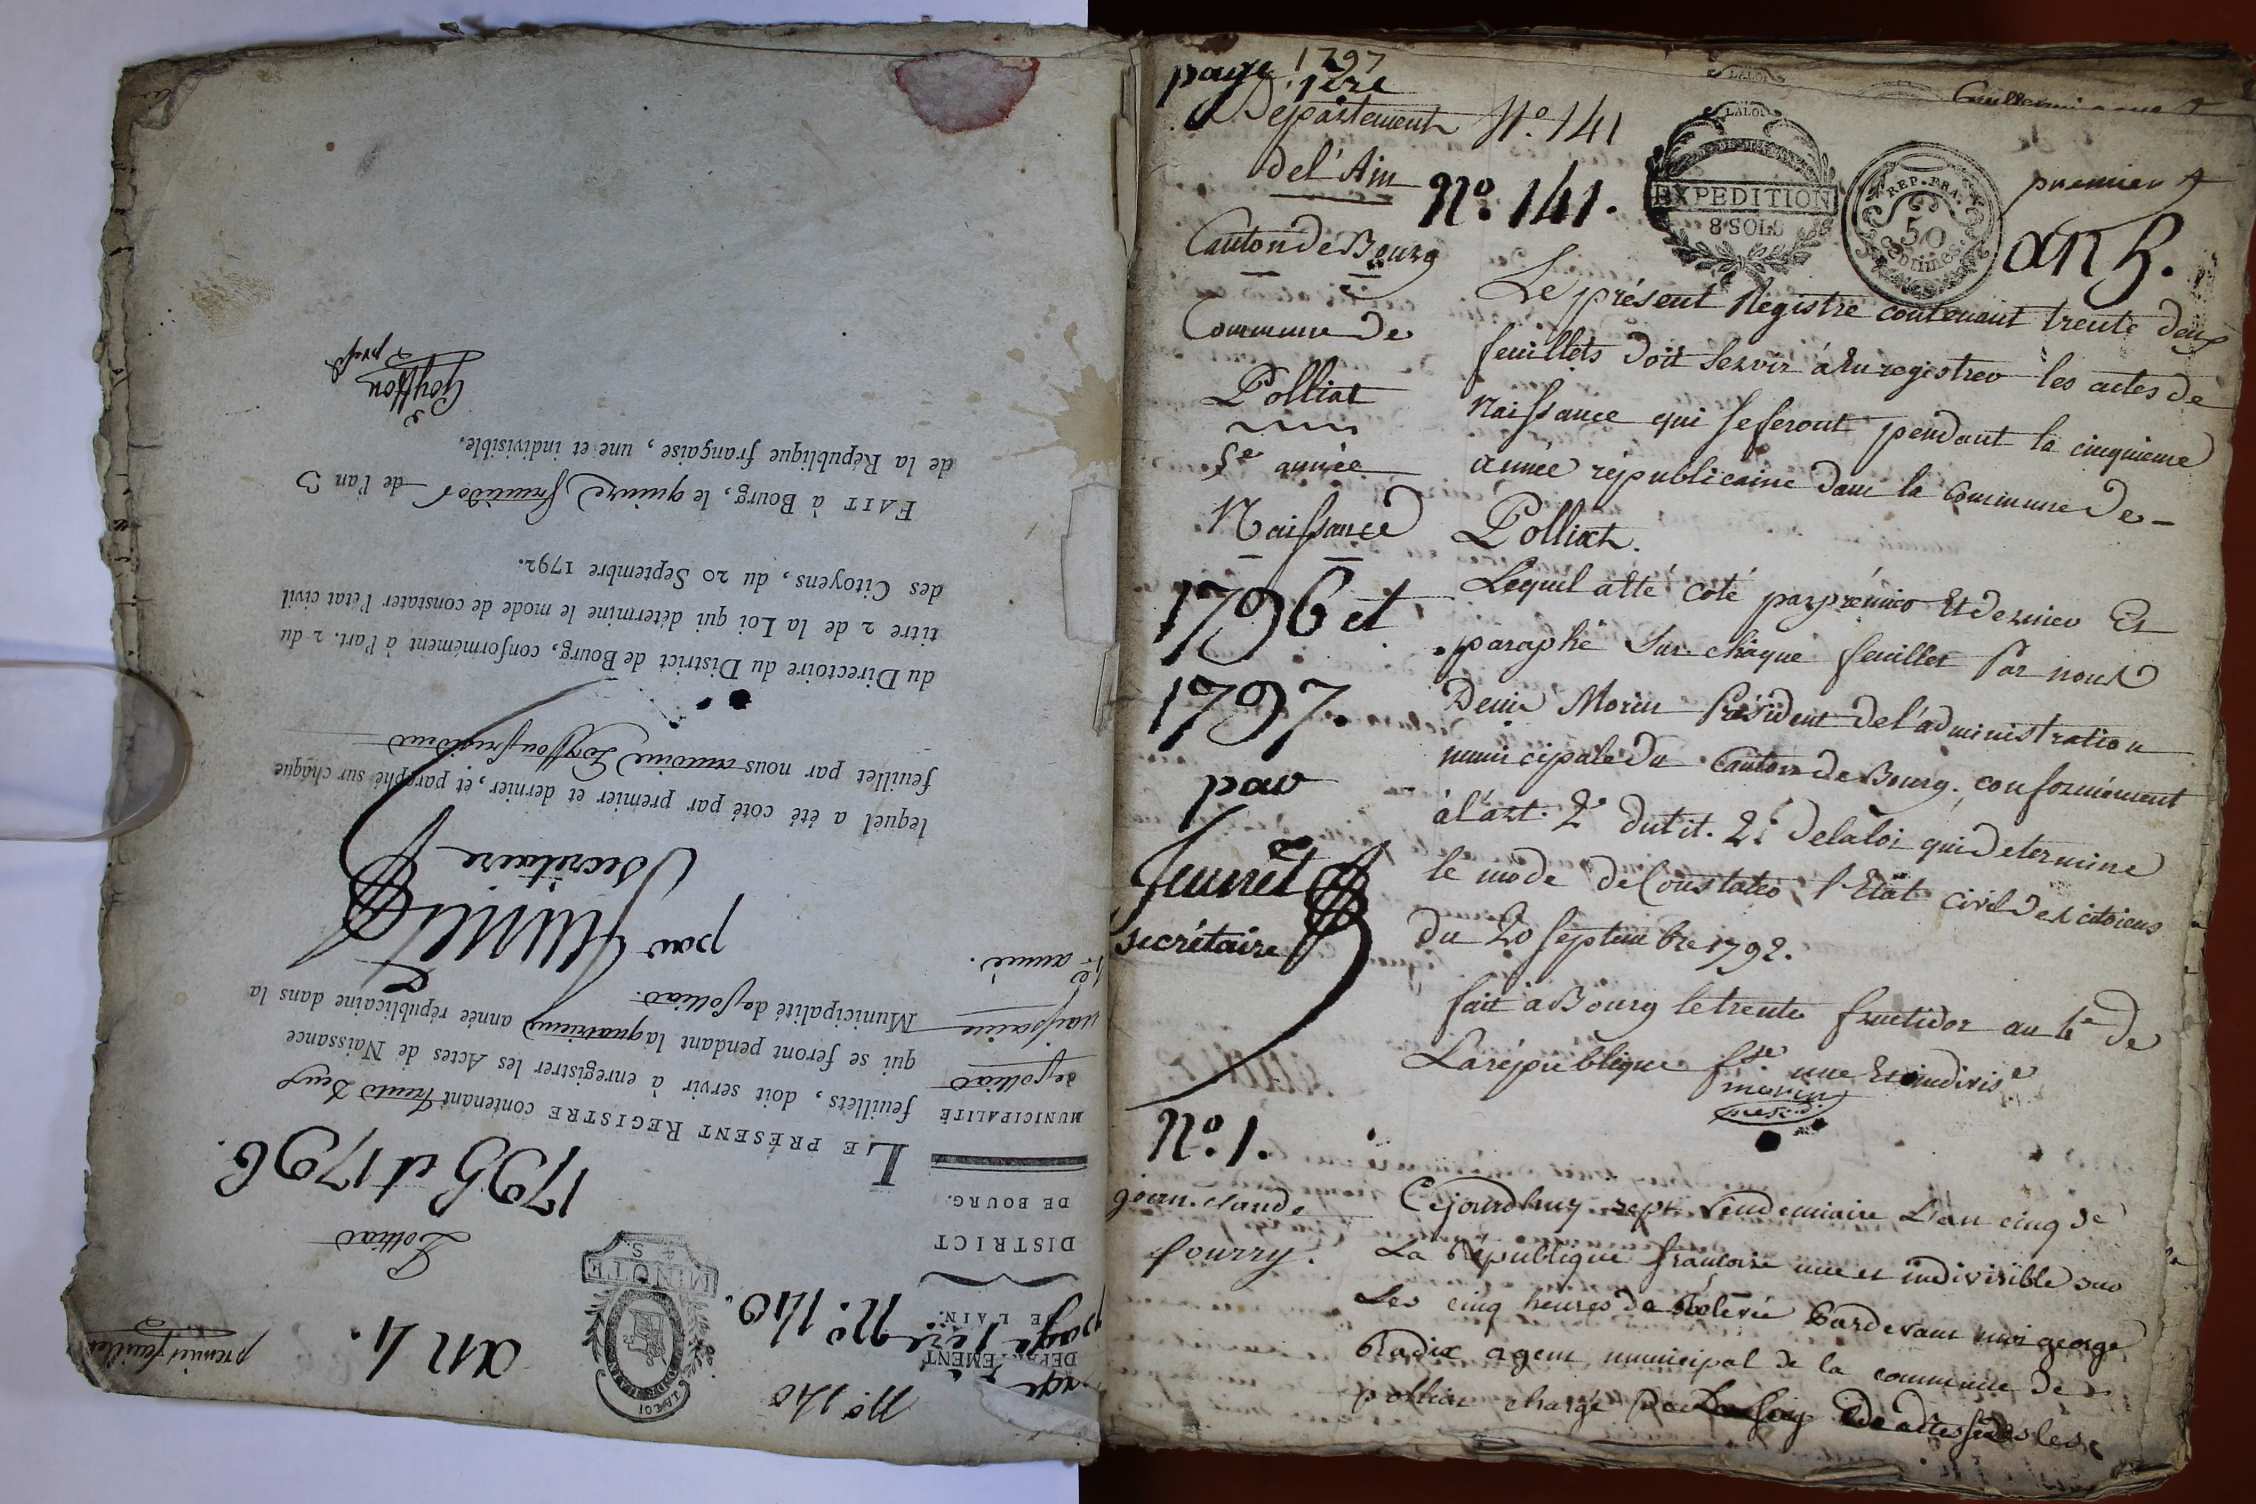 page 1ère
1797
Département N.º 141
del'Ain
N.º 141.
LALOI
EXPEDITION
8 SOLS
REP. FRA.
50
Centimes
premier
an 5.
Canton de Bourg
Commune de
Polliat
5e année
Naissance
1796 et
1797.
par
Jeunet
secrétaire
Le présent Registre contenant trente deux
feuillets doit servir à Enregistrer les actes de
Naissance qui se feront pendant la cinquieme
année républicaine dans la Commune De -
Polliat.
Lequel a été coté par prémier Et dernier Et
paraphé Sur chaque feuillet Par nous
Denis Morin Président del'administration
municipale du Canton de Bourg. conformément
à l'art. 2e du tit. 2e delaloi qui determine
le mode de Constater l'Etat civil des citoiens
du 20 septembre 1792.
fait à Bourg le trente fructidor an 4e de
La république fse une Et indivise
morin
presid.
N.º 1.
gian. claude
fourry.
Cejourdhuy sept Vendemiaire L'an cinq de
La République francoise une et indivisible sur
Les cinq heures de Rolevée Pardevant moi george
Radix agent municipal de la commune de
polliat chargé
page 1ère N.º 140.
N.º 140
an 4.
premier feuillet
LALOI
MINUTE
4 S.
DÉPARTEMENT
DE L'AIN.
DISTRICT
DE BOURG.
MUNICIPALITÉ
de polliat
naissance
4e année.
Polliat
1795 et 1796.
LE PRÉSENT REGISTRE contenant trente Deux
feuillets, doit servir à enregistrer les Actes de Naissance
qui se feront pendant la quatrieme année républicaine dans la
Municipalité de polliat.
par Jeunet
Secrétaire
lequel a été coté par premier et dernier, et paraphé sur chaque
feuillet par nous antoine Goyffon president
du Directoire du District de Bourg, conformément à l'art. 2 du
titre 2 de la Loi qui détermine le mode de constater l'état civil
des Citoyens, du 20 Septembre 1792.
FAIT à Bourg, le quinze fructidor de l'an 3
de la République française, une et indivisible.
Goyffon
presd